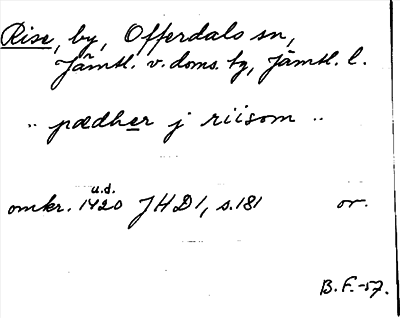 Rise, by, Offerdals sn,
Jämtl. v. doms. tg, Jämtl. l.
" pædher j riisom "
u.d.
omkr. 1420 JHD 1, s. 181 or.
B. F. -57.